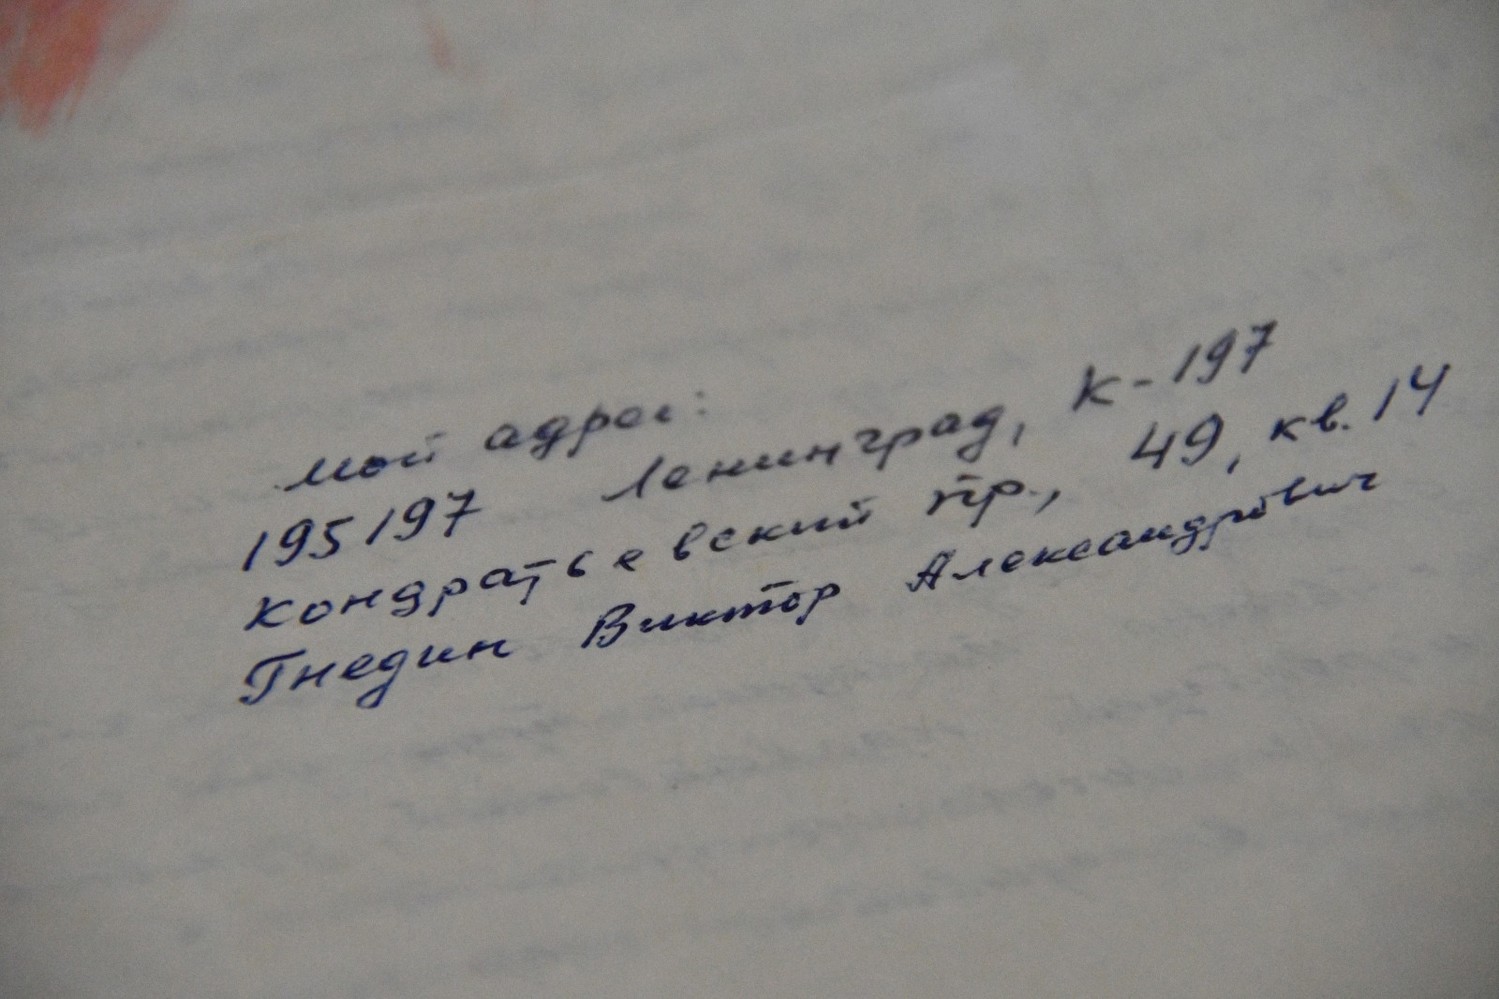 мой адрес:
195197 Ленинград, К-197
Кондратьевский пр., 49, кв. 14
Гнедин Виктор Александрович